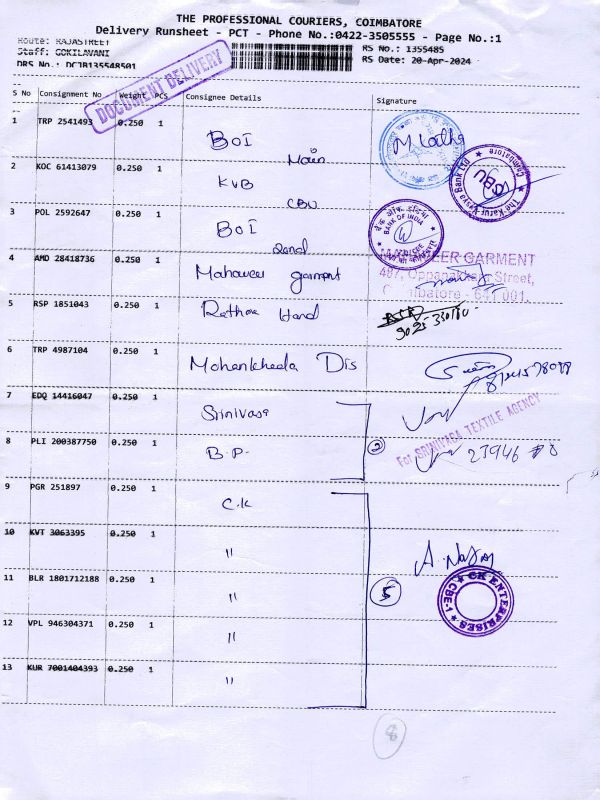 THE PROFESSIONAL COURIERS, COIMBATORE
Delivery Runsheet - PCT - Phone No.:0422-3505555 - Page No.:1
Route: RAJASTREET RS No.: 1355485
Staff: GOKILAVANI RS Date: 20-Apr-2024
DRS No.: DCJB135548501
DOCUMENT DELIVERY
S No Consignment No Weight PCS Consignee Details Signature
1 TRP 2541493 0.250 1 BOI Main
2 KOC 61413079 0.250 1 KVB CBU
The Karur Vysya Bank Ltd Coimbatore CBU
3 POL 2592647 0.250 1 BOI
BANK OF INDIA
4 AMD 28418736 0.250 1 Mahaveer garment
GARMENT
Street,
641 001.
5 RSP 1851043 0.250 1 Rathna Hand
6 TRP 4987104 0.250 1 Dis
7 EDQ 14416047 0.250 1 Srinivasa
For SRINIVASA TEXTILE AGENCY
8 PLI 200387750 0.250 1 B.P. 2
9 PGR 251897 0.250 1 C.K
10 KVT 3063395 0.250 1 "
11 BLR 1801712188 0.250 1 " 5
CK ENTERPRISES CBE-1
12 VPL 946304371 0.250 1 "
13 KUR 7001404393 0.250 1 "
8